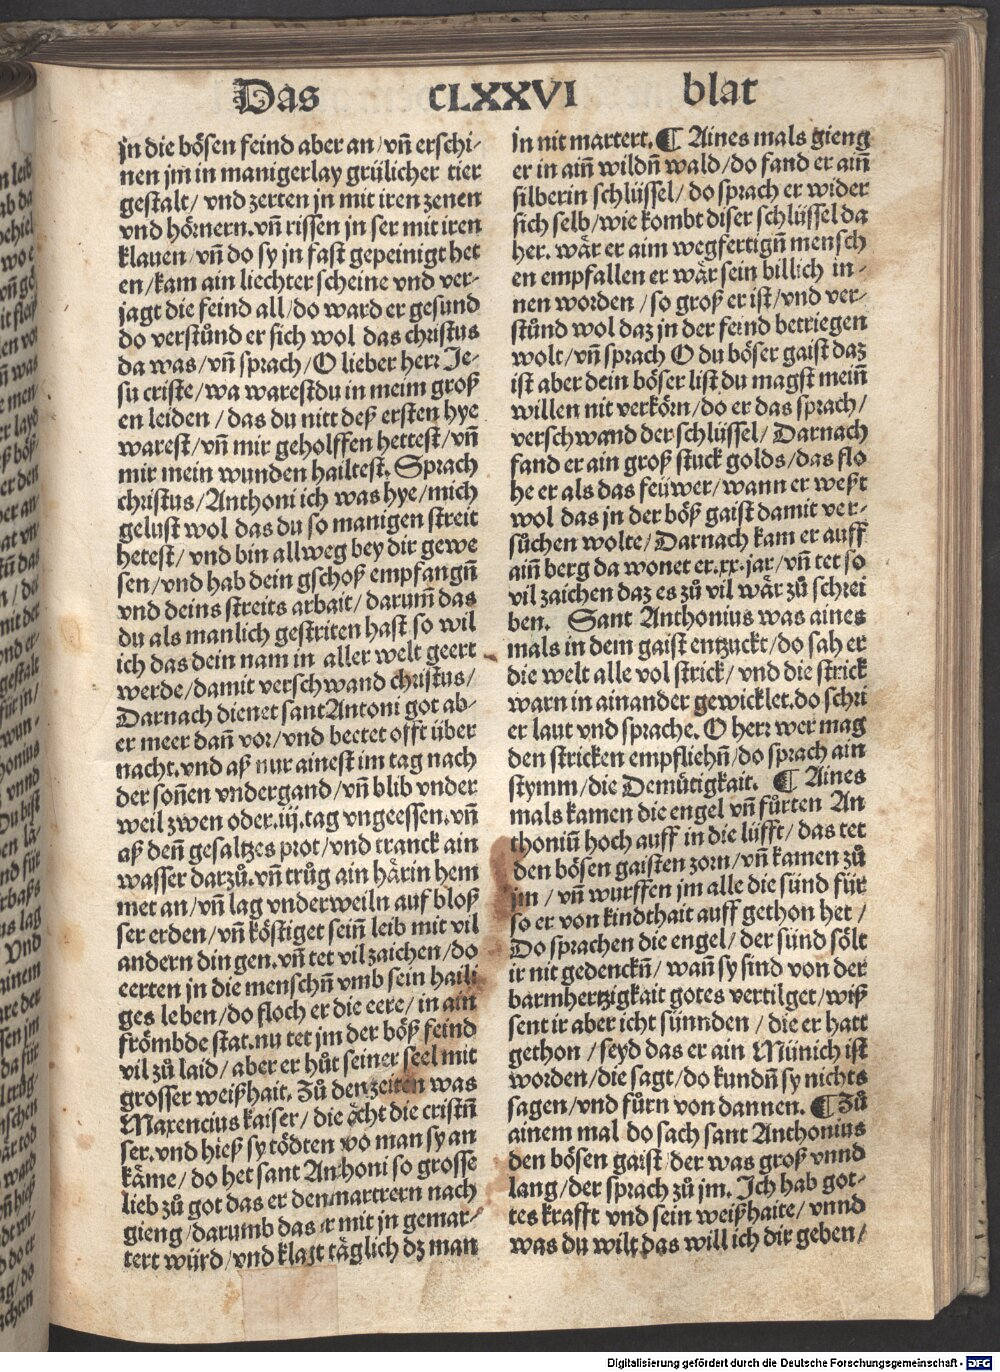 Das CLXXVI blat
jn die bösen feind aber an/vñ erschi-
nen jm in manigerlay grülicher tier
gestalt/ vnd zerten jn mit iren zenen
vnd hörnern.vñ rissen jn ser mit iren
klauen/vñ do sy jn fast gepeinigt het
en/kam ain liechter scheine vnd ver-
jagt die feind all/do ward er gesund
do verstůnd er sich wol das christus
da was/vñ sprach/O lieber herr Je-
su criste/wa warestdu in meim groß
en leiden/das du nitt deß ersten hye
warest/vñ mir geholffen hettest/vñ
mir mein wunden hailtest. Sprach
christus/Anthoni ich was hye/mich
gelust wol das du so manigen streit
hetest/vnd bin allweg bey dir gewe
sen/vnd hab dein gschoß empfangñ
vnd deins streits arbait/darum̃ das
du als manlich gestriten hast so wil
ich das dein nam in aller welt geert
werde/damit verschwand christus/
Darnach dienet sant Antoni got ab-
er meer dañ vor/vnd beetet offt über
nacht.vnd aß nur ainest im tag nach
der soñen vndergand/vñ blib vnder
weil zwen oder.iij.tag vngeessen.vñ
aß deñ gesaltzes prot/vnd tranck ain
wasser darzů.vñ trůg ain härin hem
met an/vñ lag vnderweiln auf bloß
ser erden/vñ köstiget seiñ leib mit vil
andern dingen.vñ tet vil zaichen/do
eerten jn die menschñ vmb sein haili
ges leben/do floch er die eere/in ain
frömbde stat.nu tet jm der böß feind
vil zů laid/aber er hůt seiner seel mit
grosser weißhait. Zů den zeiten was
Maxencius kaiser/die ächt die cristñ
ser.vnd hieß sy tödten wo man sy an
käme/do het sant Anthoni so grosse
lieb zů got das er den martrern nach
gieng/darumb das er mit jn gemar-
tert würd/vnd klagt täglich dz man
jn nit martert. ¶ Aines mals gieng
er in aiñ wildñ wald/do fand er aiñ
silberin schlüssel/do sprach er wider
sich selb/wie kombt diser schlüssel da
her. wär er aim wegfertigñ mensch
en empfallen er wär sein billich in-
nen worden/so groß er ist/vnd ver-
stůnd wol daz jn der feind betriegen
wolt/vñ sprach O du böser gaist daz
ist aber dein böser list du magst meiñ
willen nit verkörn/do er das sprach/
verschwand der schlüssel/Darnach
fand er ain groß stuck golds/das flo
he er als das feüwer/wann er weßt
wol das jn der böß gaist damit ver-
sůchen wolte/Darnach kam er auff
aiñ berg da wonet er.xx.jar/vñ tet so
vil zaichen daz es zů vil wär zů schrei
ben. Sant Anthonius was aines
mals in dem gaist entzuckt/do sah er
die welt alle vol strick/vnd die strick
warn in ainander gewicklet.do schri
er laut vnd sprache. O herr wer mag
den stricken empfliehñ/do sprach ain
stymm/die Demütigkait. ¶ Aines
mals kamen die engel vñ fůrten An
thoniũ hoch auff in die lüfft/das tet
den bösen gaisten zorn/vñ kamen zů
jm/vñ wurffen jm alle die sünd für
so er von kindthait auff gethon het/
Do sprachen die engel/der sünd sölt
ir nit gedenckñ/wañ sy sind von der
barmhertzigkait gotes vertilget/wiß
sent ir aber icht sünnden/die er hatt
gethon/seyd das er ain Münich ist
worden/die sagt/do kundñ sy nichts
sagen/vnd fůrn von dannen. ¶ Zů
ainem mal do sach sant Anthonius
den bösen gaist/der was groß vnnd
lang/der sprach zů jm. Ich hab got-
tes krafft vnd sein weißhaite/vnnd
was du wilt das will ich dir geben/
Digitalisierung gefördert durch die Deutsche Forschungsgemeinschaft - DFG